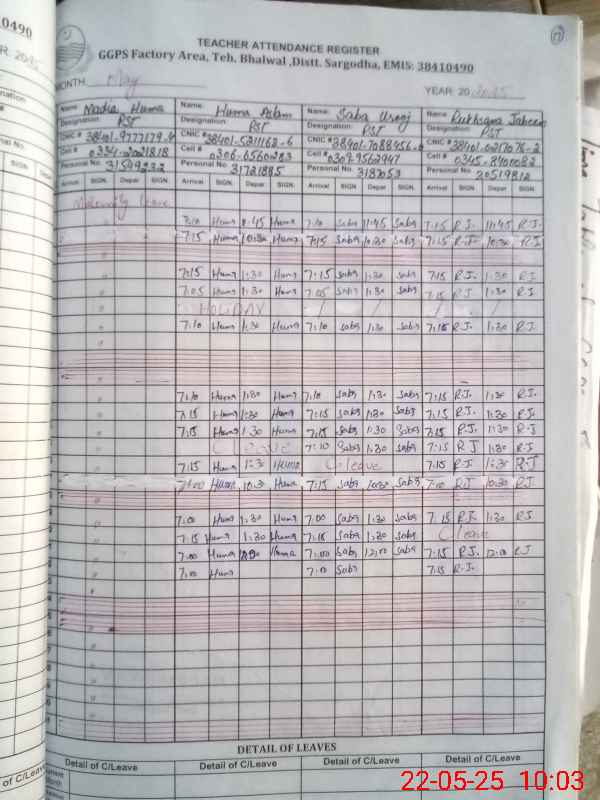 TEACHER ATTENDANCE REGISTER
GGPS Factory Area, Teh. Bhalwal ,Distt. Sargodha, EMIS: 38410490
MONTH May YEAR: 20 2025
Name: Nadia Huma Name: Huma Aslam Name: Saba Urooj Name: Rukhsana Jabeen
Designation: PST Designation: PST Designation: PST Designation: PST
CNIC # CNIC # 38401-5211162-6 CNIC # 38401-7088456-8 CNIC # 38401-0217076-2
Cell # 0334-2021818 Cell # 0306-6560283 Cell # 0309-9562947 Cell # 0345-8400082
Personal No. 31599232 Personal No. 31721885 Personal No. 3187053 Personal No. 20519812
Arrival SIGN. Depar SIGN. Arrival SIGN. Depar SIGN. Arrival SIGN. Depar SIGN. Arrival SIGN. Depar SIGN.
Maternity leave
7:10 Huma 11:45 Huma 7:10 Saba 11:45 Saba 7:15 R.J. 11:45 R.J.
7:15 Huma 10:30 Huma 7:15 Saba 10:30 Saba 7:15 R.J. 10:30 R.J.
7:15 Huma 1:30 Huma 7:15 Saba 1:30 Saba 7:15 R.J. 1:30 R.J.
7:05 Huma 1:30 Huma 7:05 Saba 1:30 Saba 7:15 R.J. 1:30 R.J.
HOLIDAY
7:10 Huma 1:30 Huma 7:10 Saba 1:30 Saba 7:15 R.J. 1:30 R.J.
7:10 Huma 1:30 Huma 7:10 Saba 1:30 Saba 7:15 R.J. 1:30 R.J.
7:15 Huma 1:30 Huma 7:15 Saba 1:30 Saba 7:15 R.J. 1:30 R.J.
7:15 Huma 1:30 Huma 7:15 Saba 1:30 Saba 7:15 R.J. 1:30 R.J.
C leave 7:10 Saba 1:30 Saba 7:15 R J 1:30 R.J
7:15 Huma 1:30 Huma C leave 7:15 R.J 1:30 R.J
7:00 Huma 10:30 Huma 7:15 Saba 10:30 Saba 7:10 R.J 10:30 R.J
7:00 Huma 1:30 Huma 7:00 Saba 1:30 Saba 7:15 R.J. 1:30 R.J
7:15 Huma 1:30 Huma 7:15 Saba 1:30 Saba C leave
7:00 Huma Huma 7:00 Saba 12:00 Saba 7:15 R.J. 12:10 R.J
7:00 Huma 7:00 Saba 7:15 R.J.
DETAIL OF LEAVES
Detail of C/Leave Detail of C/Leave Detail of C/Leave Detail of C/Leave
22-05-25 10:03